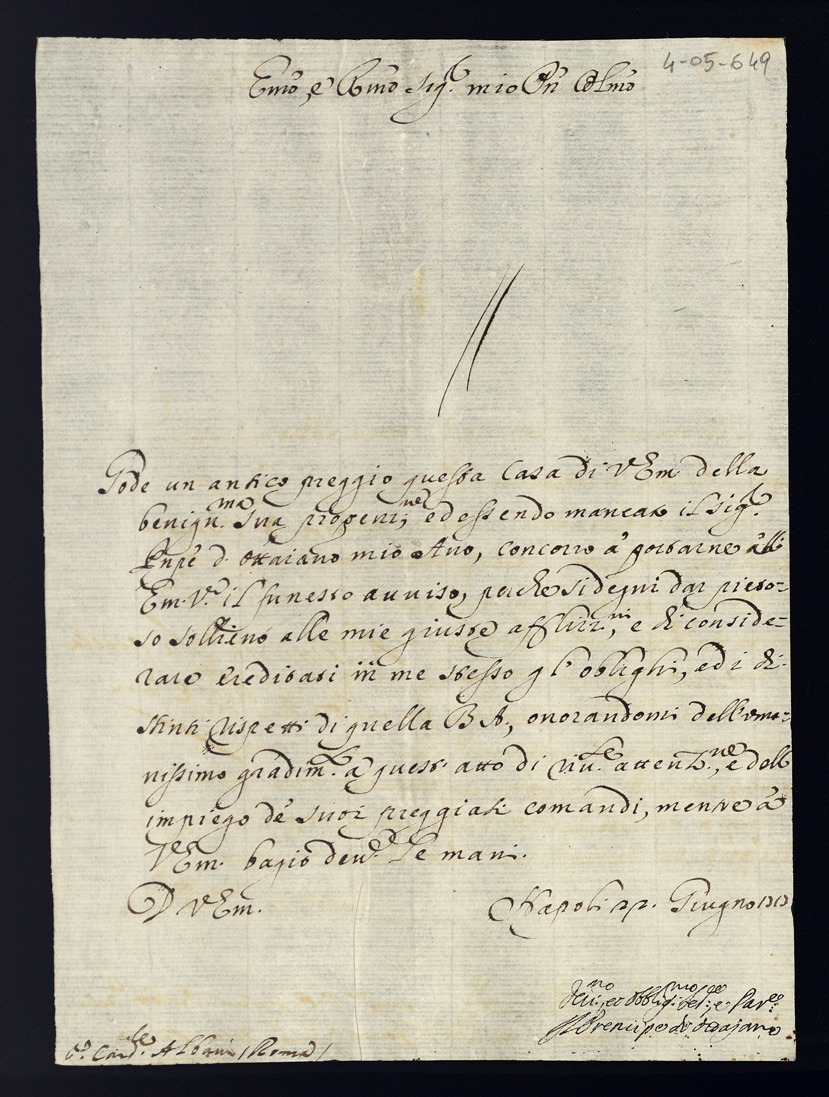 4-05-649
Emo, e Rmo Sig.r mio Pn Colmo
Gode un antico preggio questa Casa di V Em. della
benign.ma Sua protez.ne, ed essendo mancato il Sig.r
Pnpe d. Ottaiano mio Avo, concorro à portarne all'
Em. V.a il funesto avviso, perche si degni dar pieto-
so sollievo alle mie giuste affliz.ni, e di conside-
rare ereditati in me stesso gl'oblighi, ed i di-
stinti rispetti di quella
onorandomi dell'uma-
nissimo gradim.to à quest' atto di riv.te attenz.ne, e dell
impiego de' suoi preggiati comandi, mentre à
V Em. bagio dev.te le mani.
D V Em.
Napoli Giugno
Dev.mo, et obblig.mo e
Il Prencipe di Ottajano
Card.le Albani (Roma)